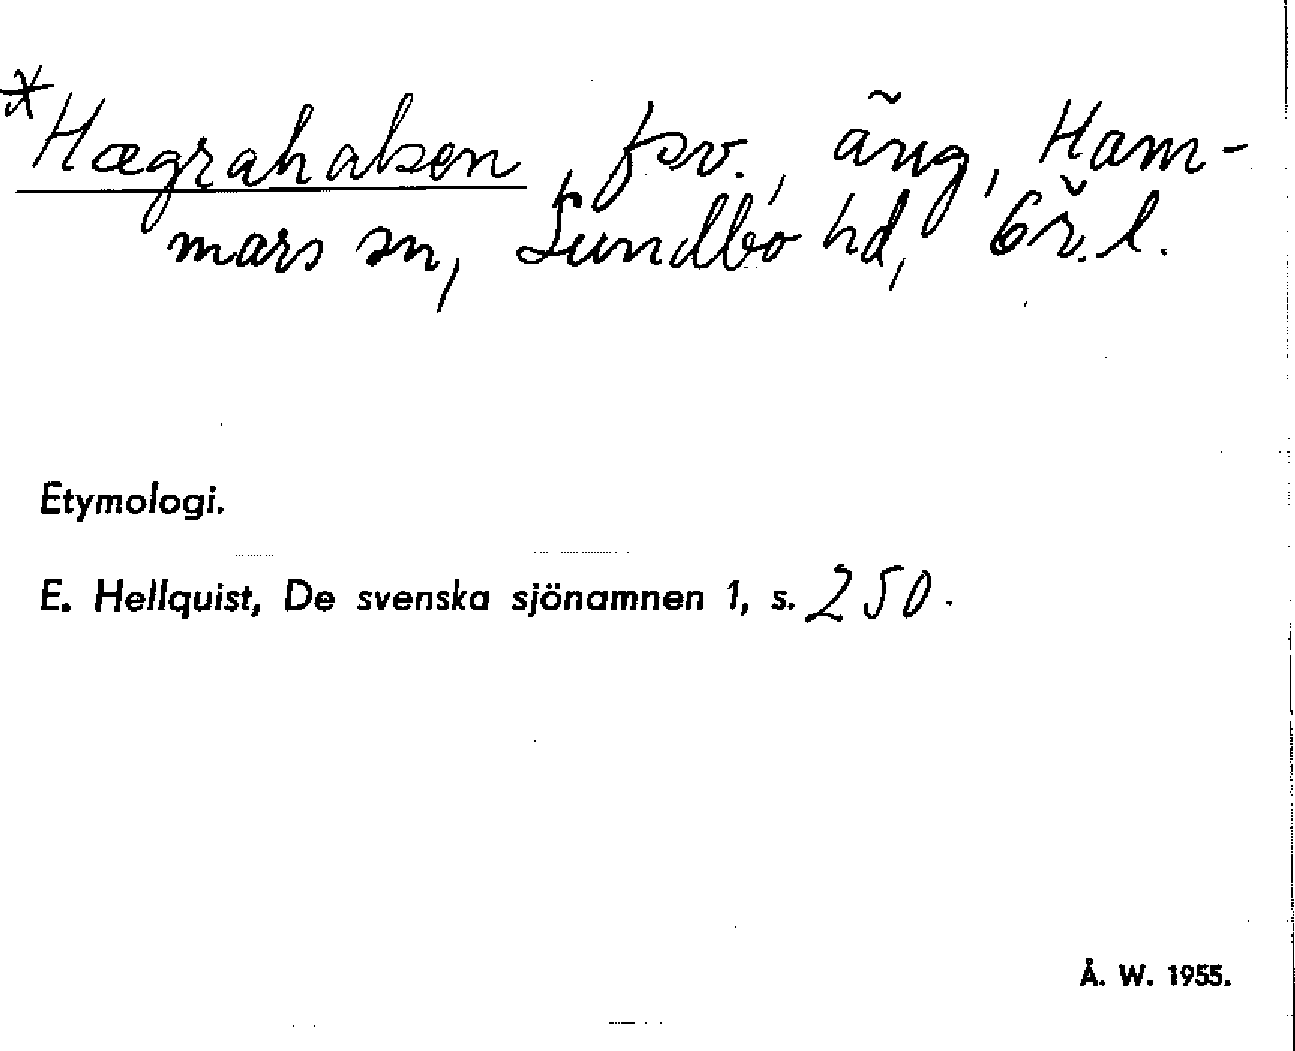 *Hægrahalsen, fsv., äng, Ham-
mars sn, Sundbo hd, Ör. l.
Etymologi.
E. Hellquist, De svenska sjönamnen 1, s. 250.
Å. W. 1955.